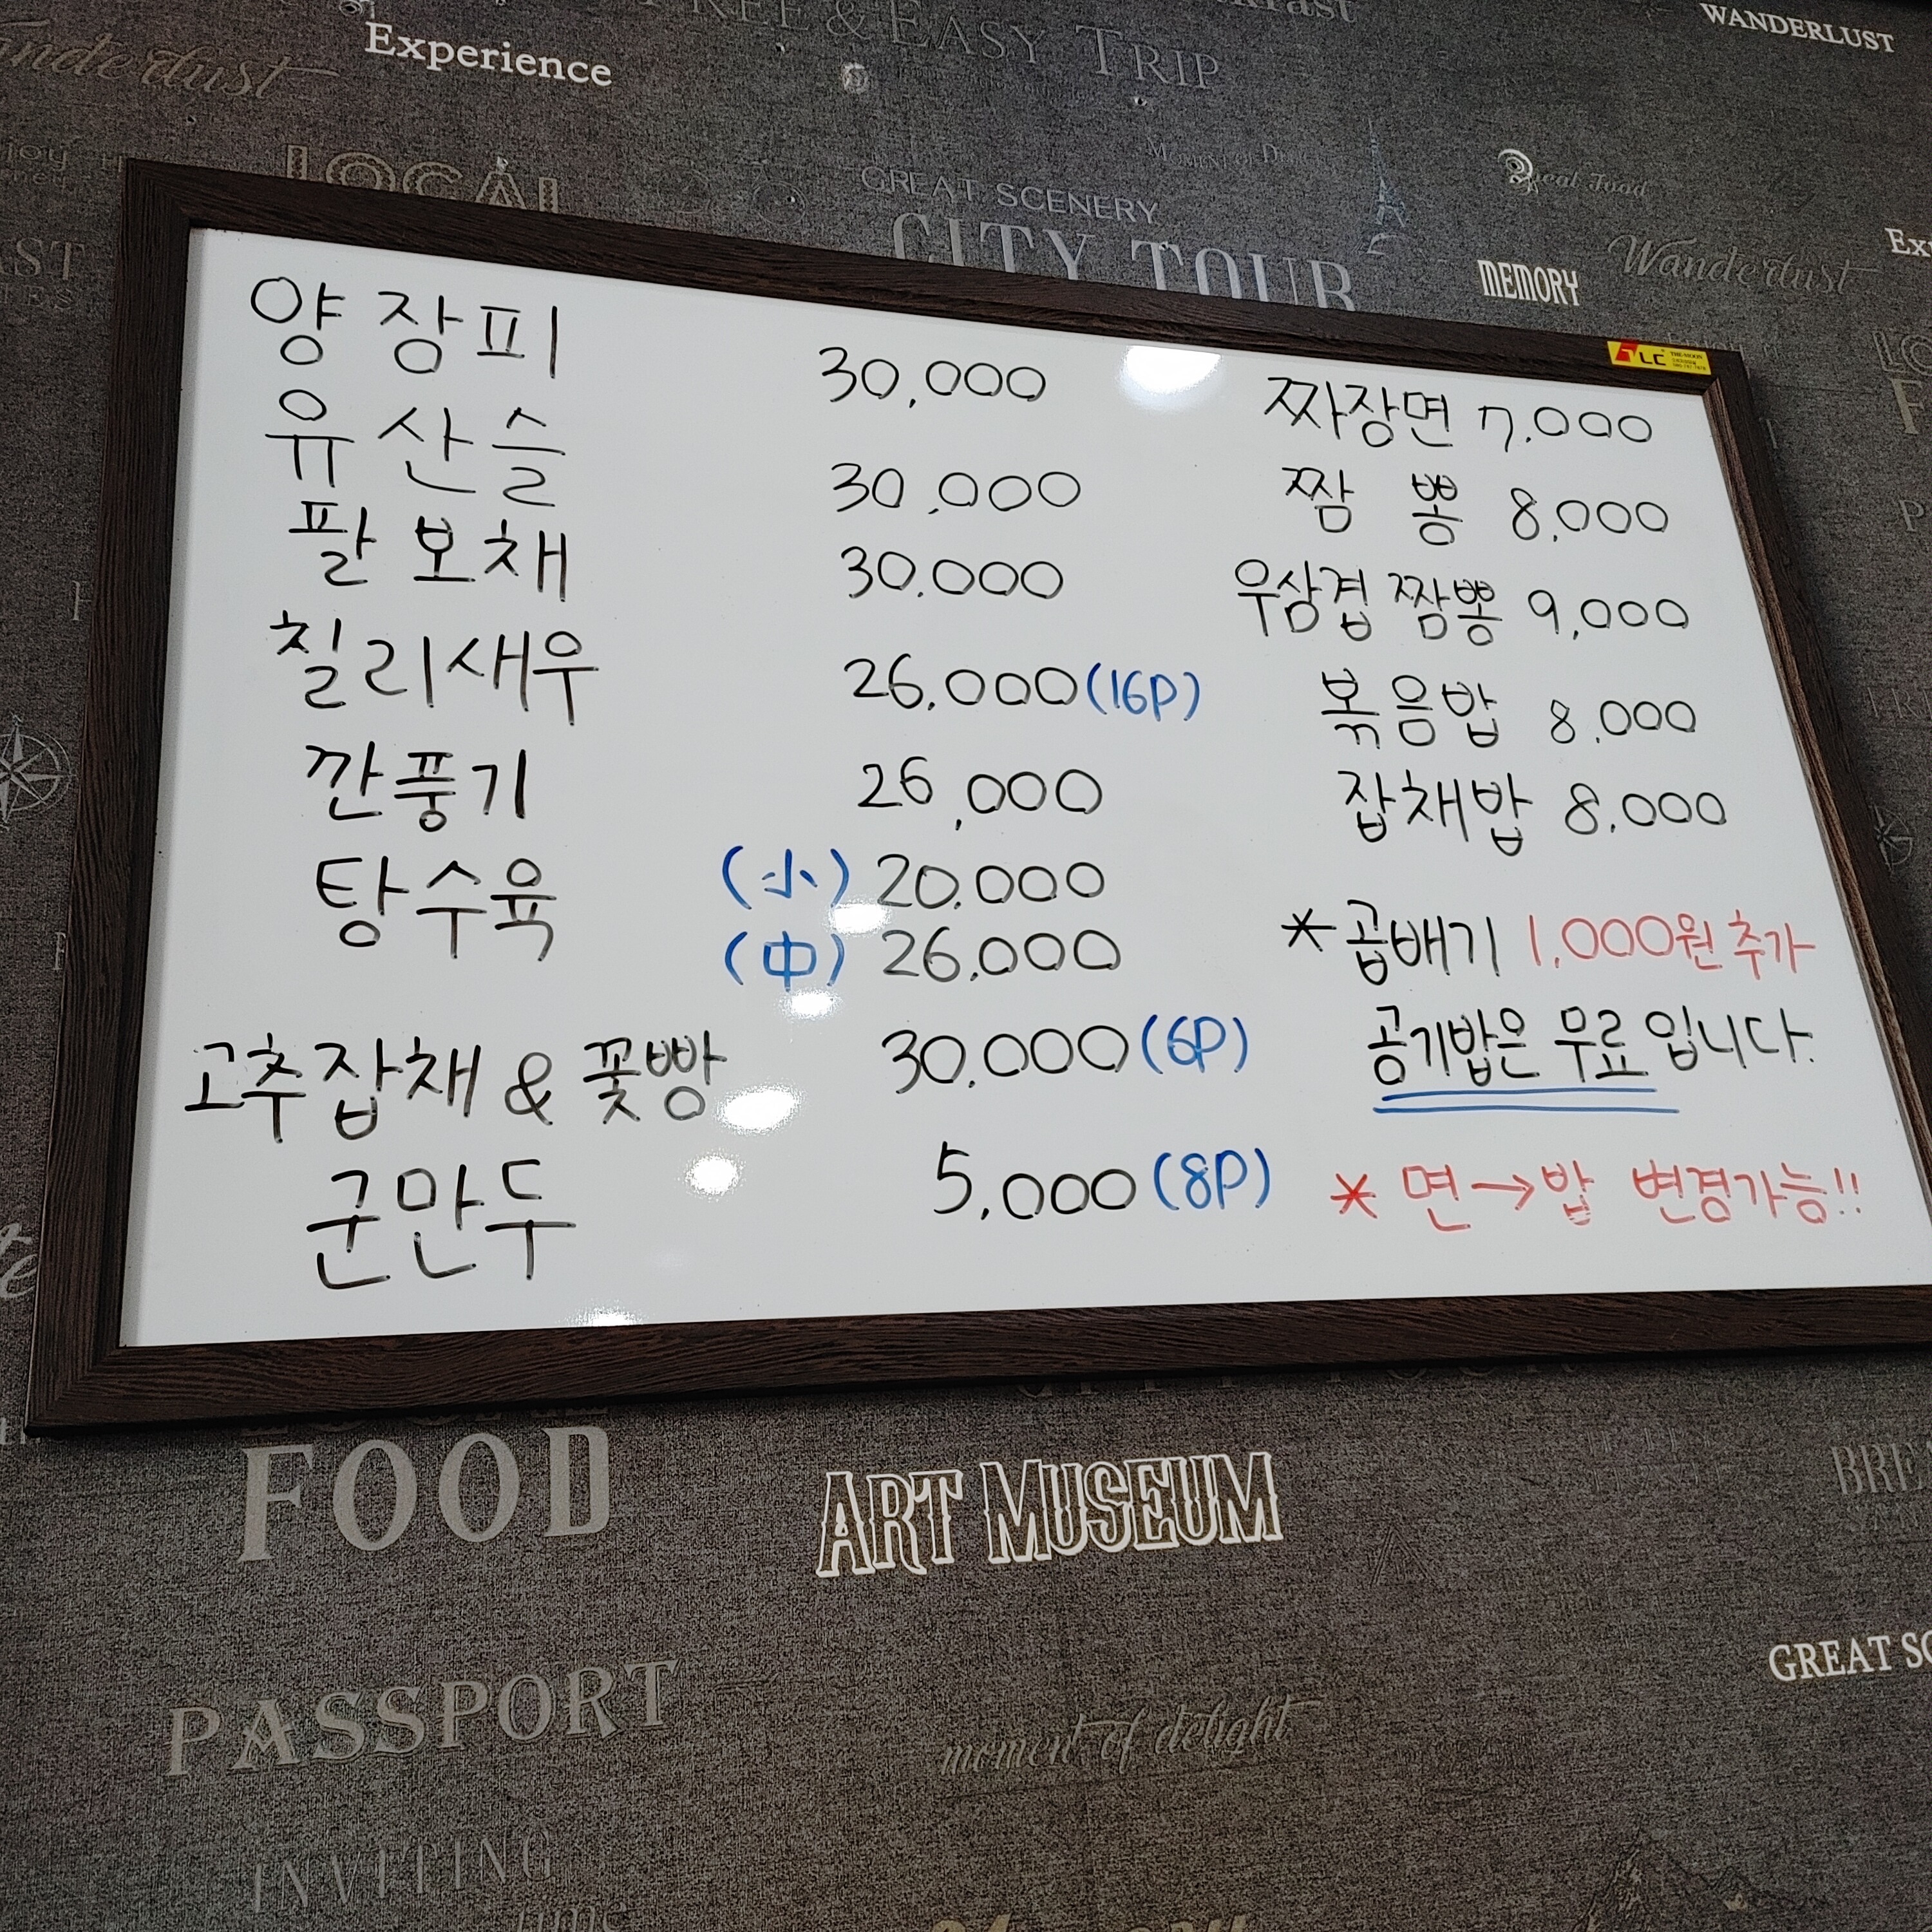 FREE & EASY TRIP
WANDERLUST
Experience
LOCAL
GREAT SCENERY
CITY TOUR
Real Food
MEMORY
Wanderlust
양장피 30,000
유산슬 30,000
팔보채 30.000
칠리새우 26,000(16P)
깐풍기 26,000
탕수육 (小) 20.000
(中) 26,000
고추잡채 & 꽃빵 30,000(6P)
군만두 5,000(8P)
짜장면 7,000
짬 뽕 8,000
우삼겹 짬뽕 9,000
볶음밥 8,000
잡채밥 8,000
*곱배기 1,000원 추가
공기밥은 무료입니다.
* 면→밥 변경가능!!
FOOD
ART MUSEUM
PASSPORT
moment of delight
GREAT SC
INVITING
time